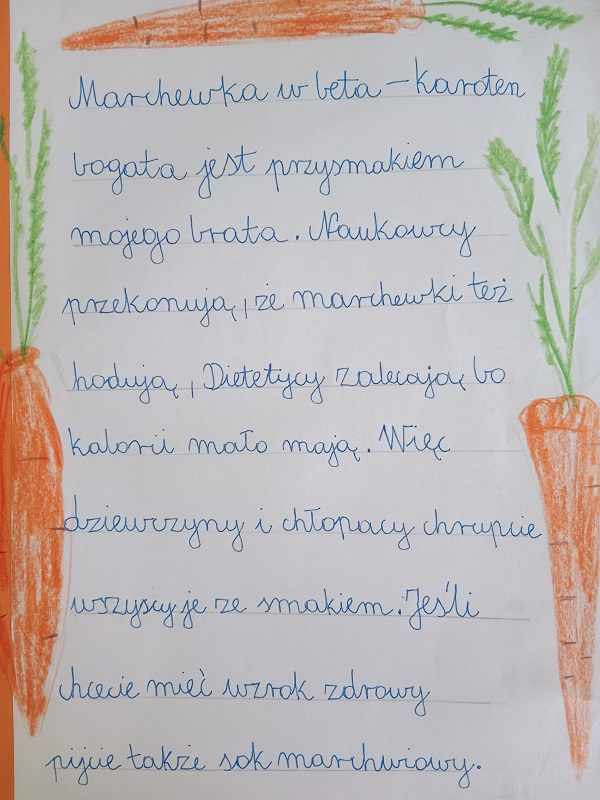 Marchewka w beta - karoten
bogata jest przysmakiem
mojego brata. Naukowcy
przekonują, że marchewki też
hodują, Dietetycy zalecają, bo
kalorii mało mają. Więc
dziewczyny i chłopacy chrupcie
wszyscy je ze smakiem. Jeśli
chcecie mieć wzrok zdrowy
pijcie także sok marchwiowy.